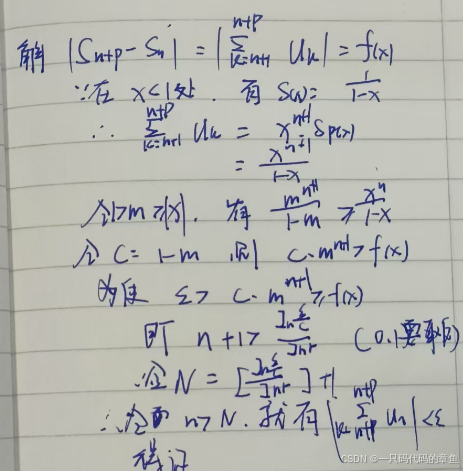 解 |Sn+p - Sn| = |∑_{k=n+1}^{n+p} Uk| = f(x)
∵在 x<1处. 有 S(x) = 1/(1-x)
∴ ∑_{k=n+1}^{n+p} Uk = x^{n+1} Sp(x)
= x^{n+1}/(1-x)
令1>m≥|x|. 有 m^{n+1}/(1-m) ≥ x^n/(1-x)
令 C = 1-m 则 C·m^{n+1} > f(x)
为使 ε > C·m^{n+1} ≥ f(x)
即 n+1 > ln(ε/C)/lnr (0.1要取)
∴令 N = [ln(ε/C)/lnr]+1
∴ n>N. 就有 |∑_{k=n+p}^{n+p} Un| < ε
得证
CSDN @一只码代码的章鱼